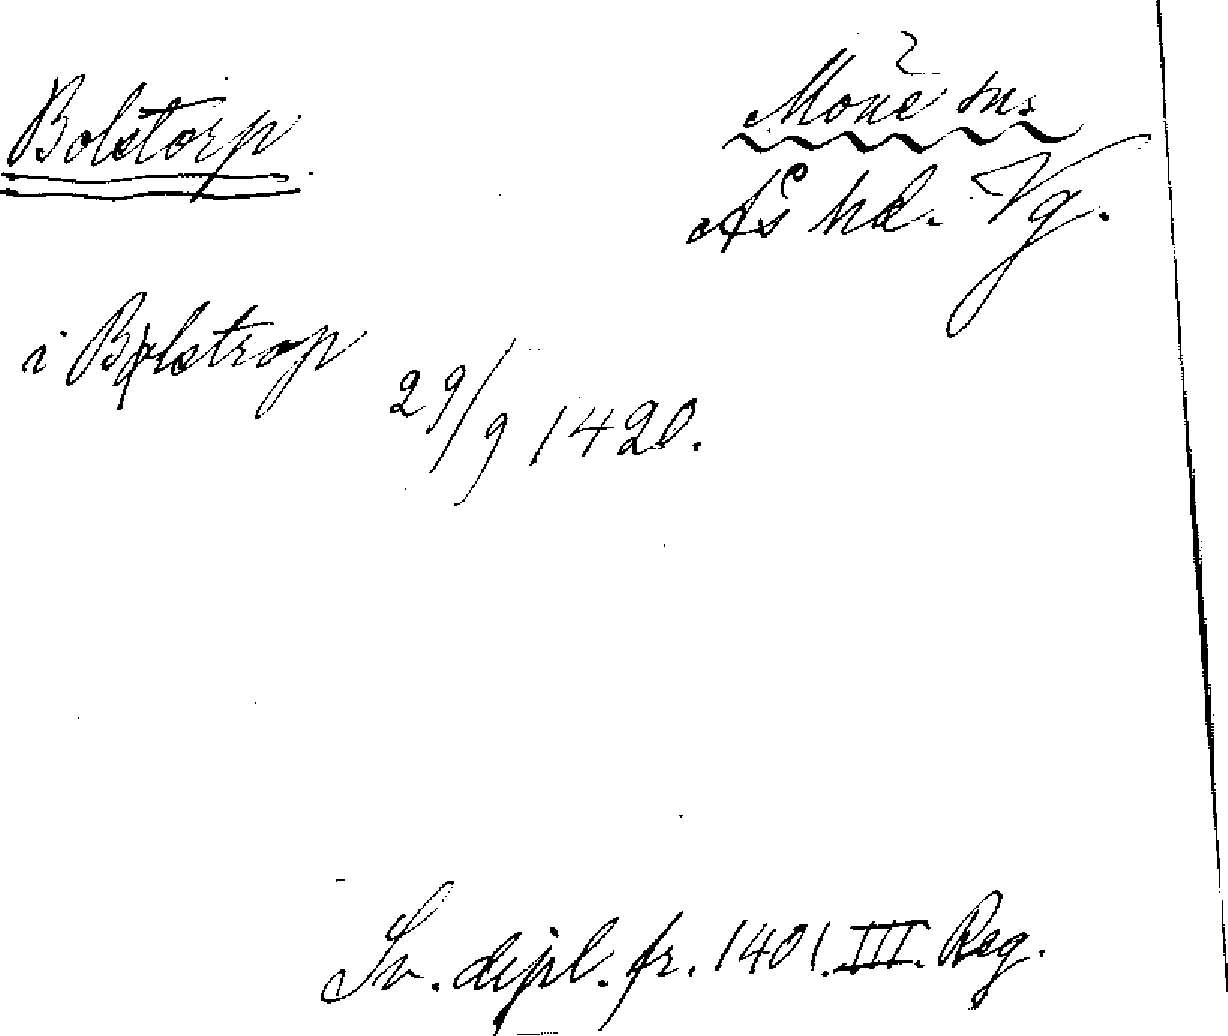 Bolstorp
Måne sn.
Ås hd. Vg.
i Bølstrop
29/9 1420.
Sv. dipl. fr. 1401. III. Reg.